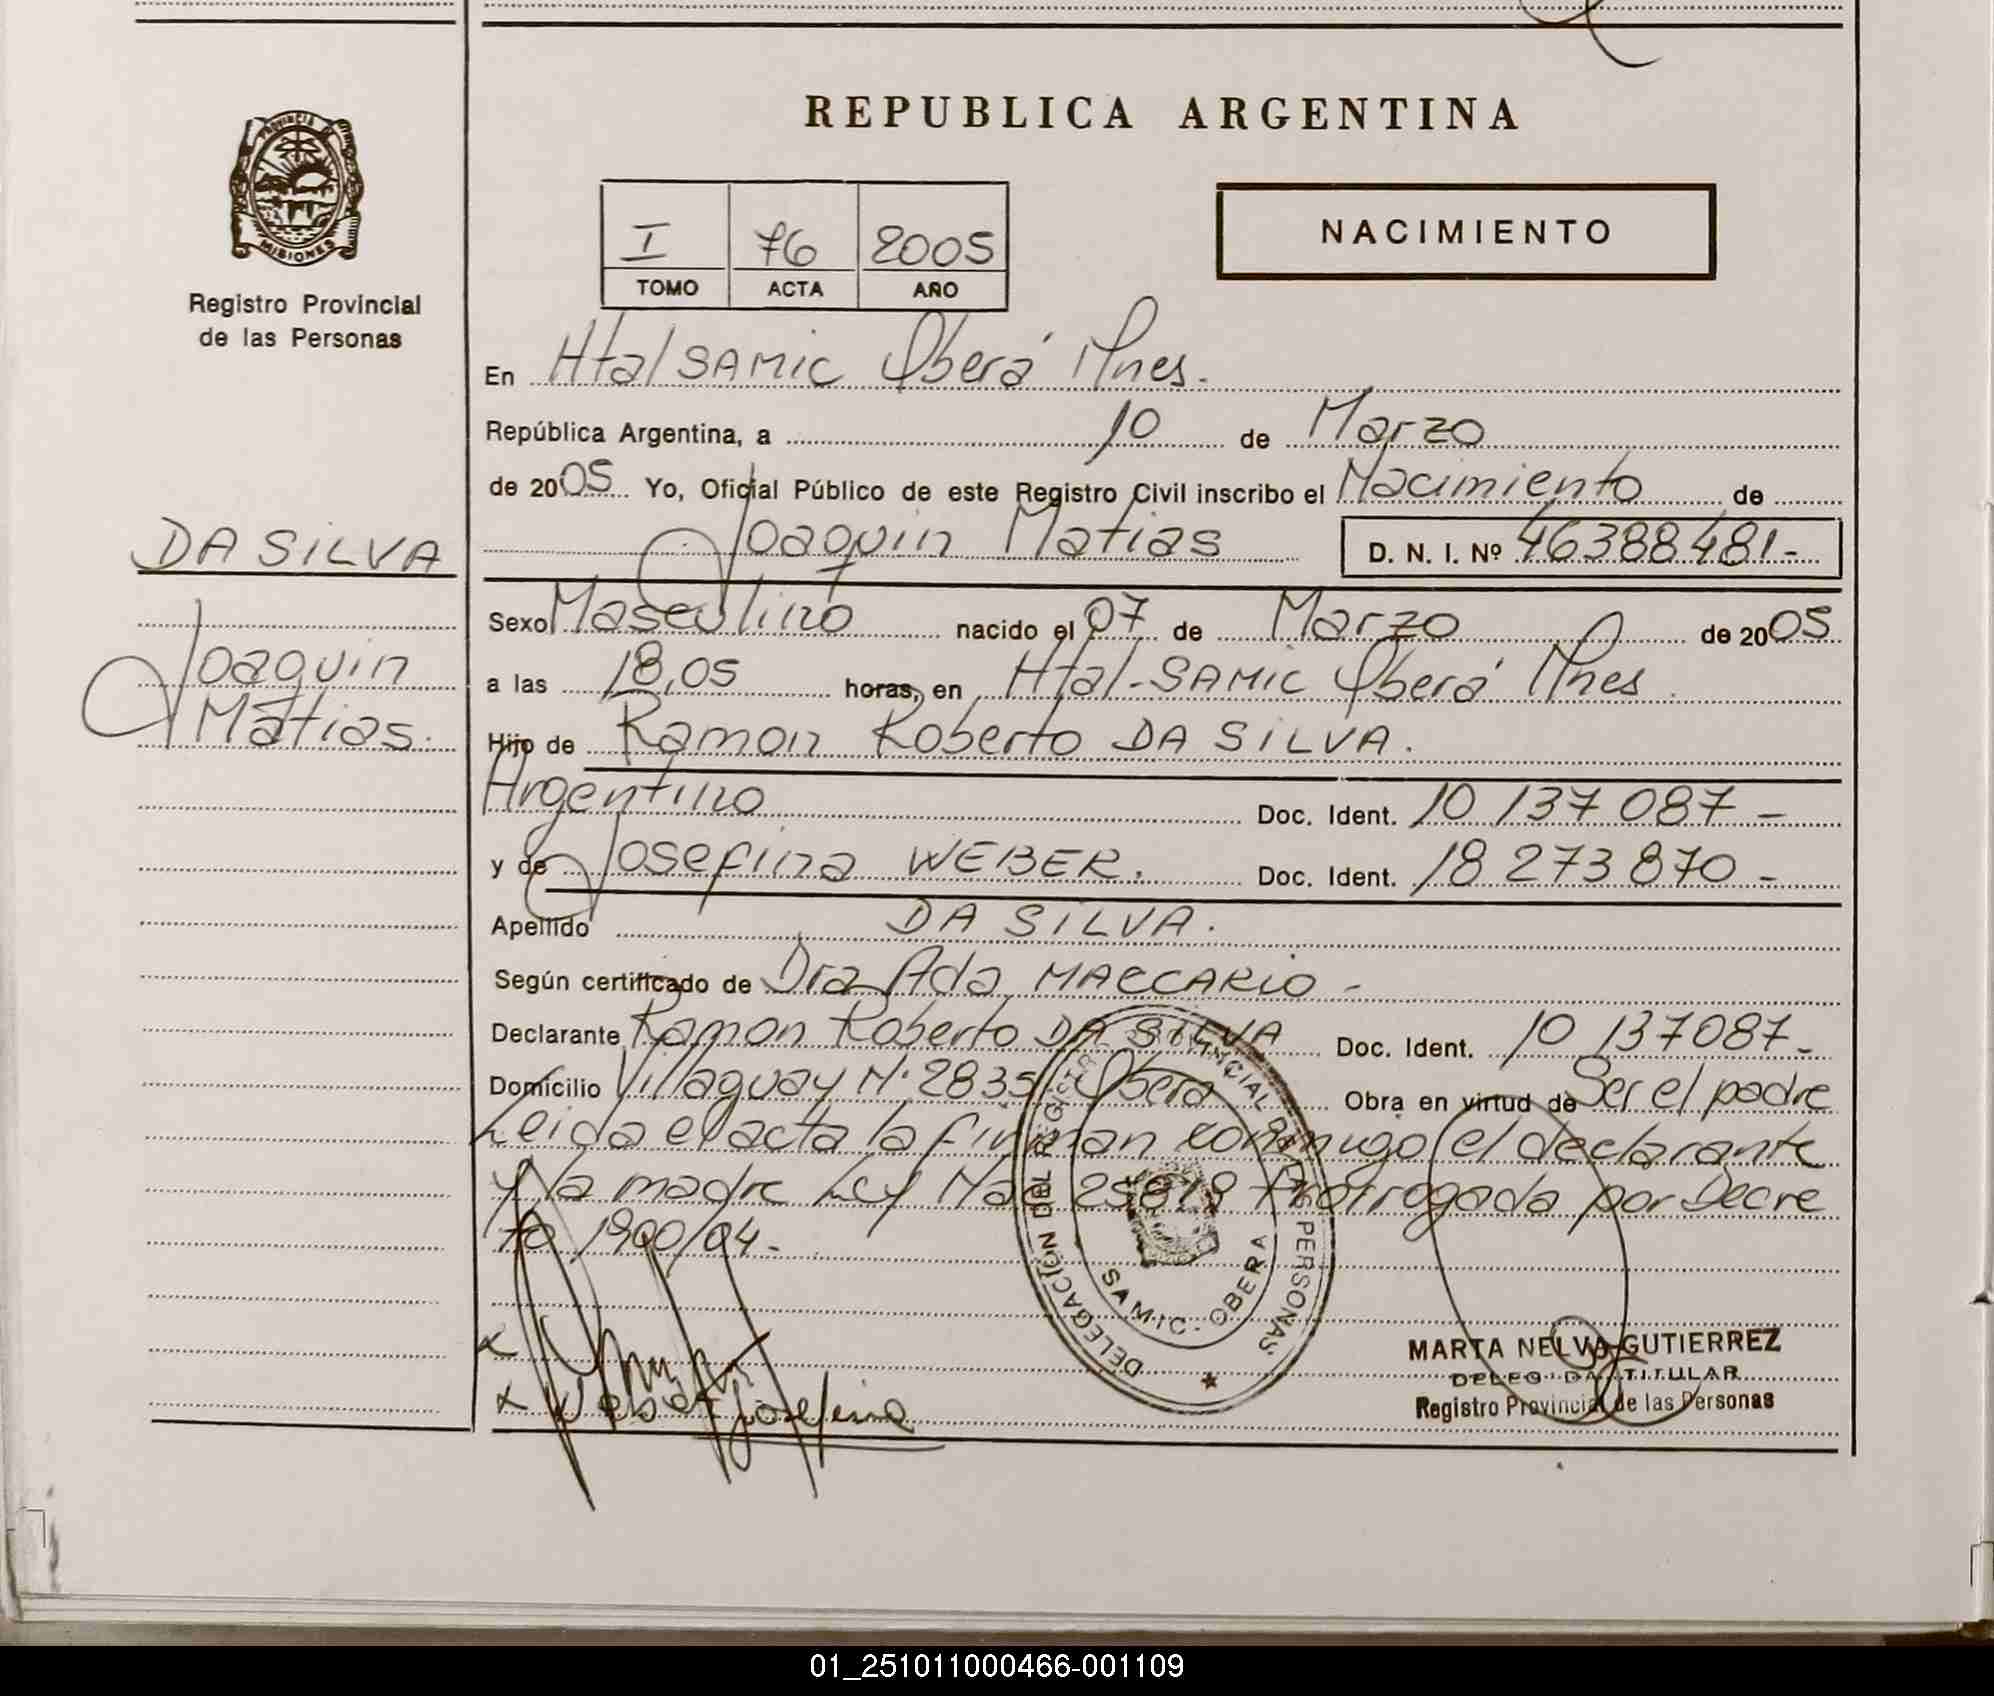 REPUBLICA ARGENTINA
PROVINCIA DE MISIONES
Registro Provincial
de las Personas
I 76 2005
TOMO ACTA AÑO
NACIMIENTO
En Htal SAMIC Oberá Mnes.
República Argentina, a 10 de Marzo
de 2005 Yo, Oficial Público de este Registro Civil inscribo el Nacimiento de
Joaquin Matias D. N. I. Nº 46388481.-
DA SILVA
Joaquin
Matias.
Sexo Masculino nacido el 07 de Marzo de 2005
a las 18,05 horas, en Htal-SAMIC Oberá Mnes.
Hijo de Ramon Roberto DA SILVA.
Argentino Doc. Ident. 10 137 087-
y de Josefina WEBER. Doc. Ident. 18 273 870-
Apellido DA SILVA.
Según certificado de Dra Ada MACCARIO-
Declarante Ramon Roberto DA SILVA Doc. Ident. 10 137087-
Domicilio Villaguay N° 2835 Oberá Obra en virtud de Ser el padre
Leida el acta la firman conmigo el declarante
y la madre Ley Nac 25819 Prorrogada por Decre
to 1900/04-
DELEGACION DEL REGISTRO PROVINCIAL DE LAS PERSONAS
SAMIC - OBERA
MARTA NELVA GUTIERREZ
DELEGADA TITULAR
Registro Provincial de las Personas
x
x Weber Josefina
01_251011000466-001109